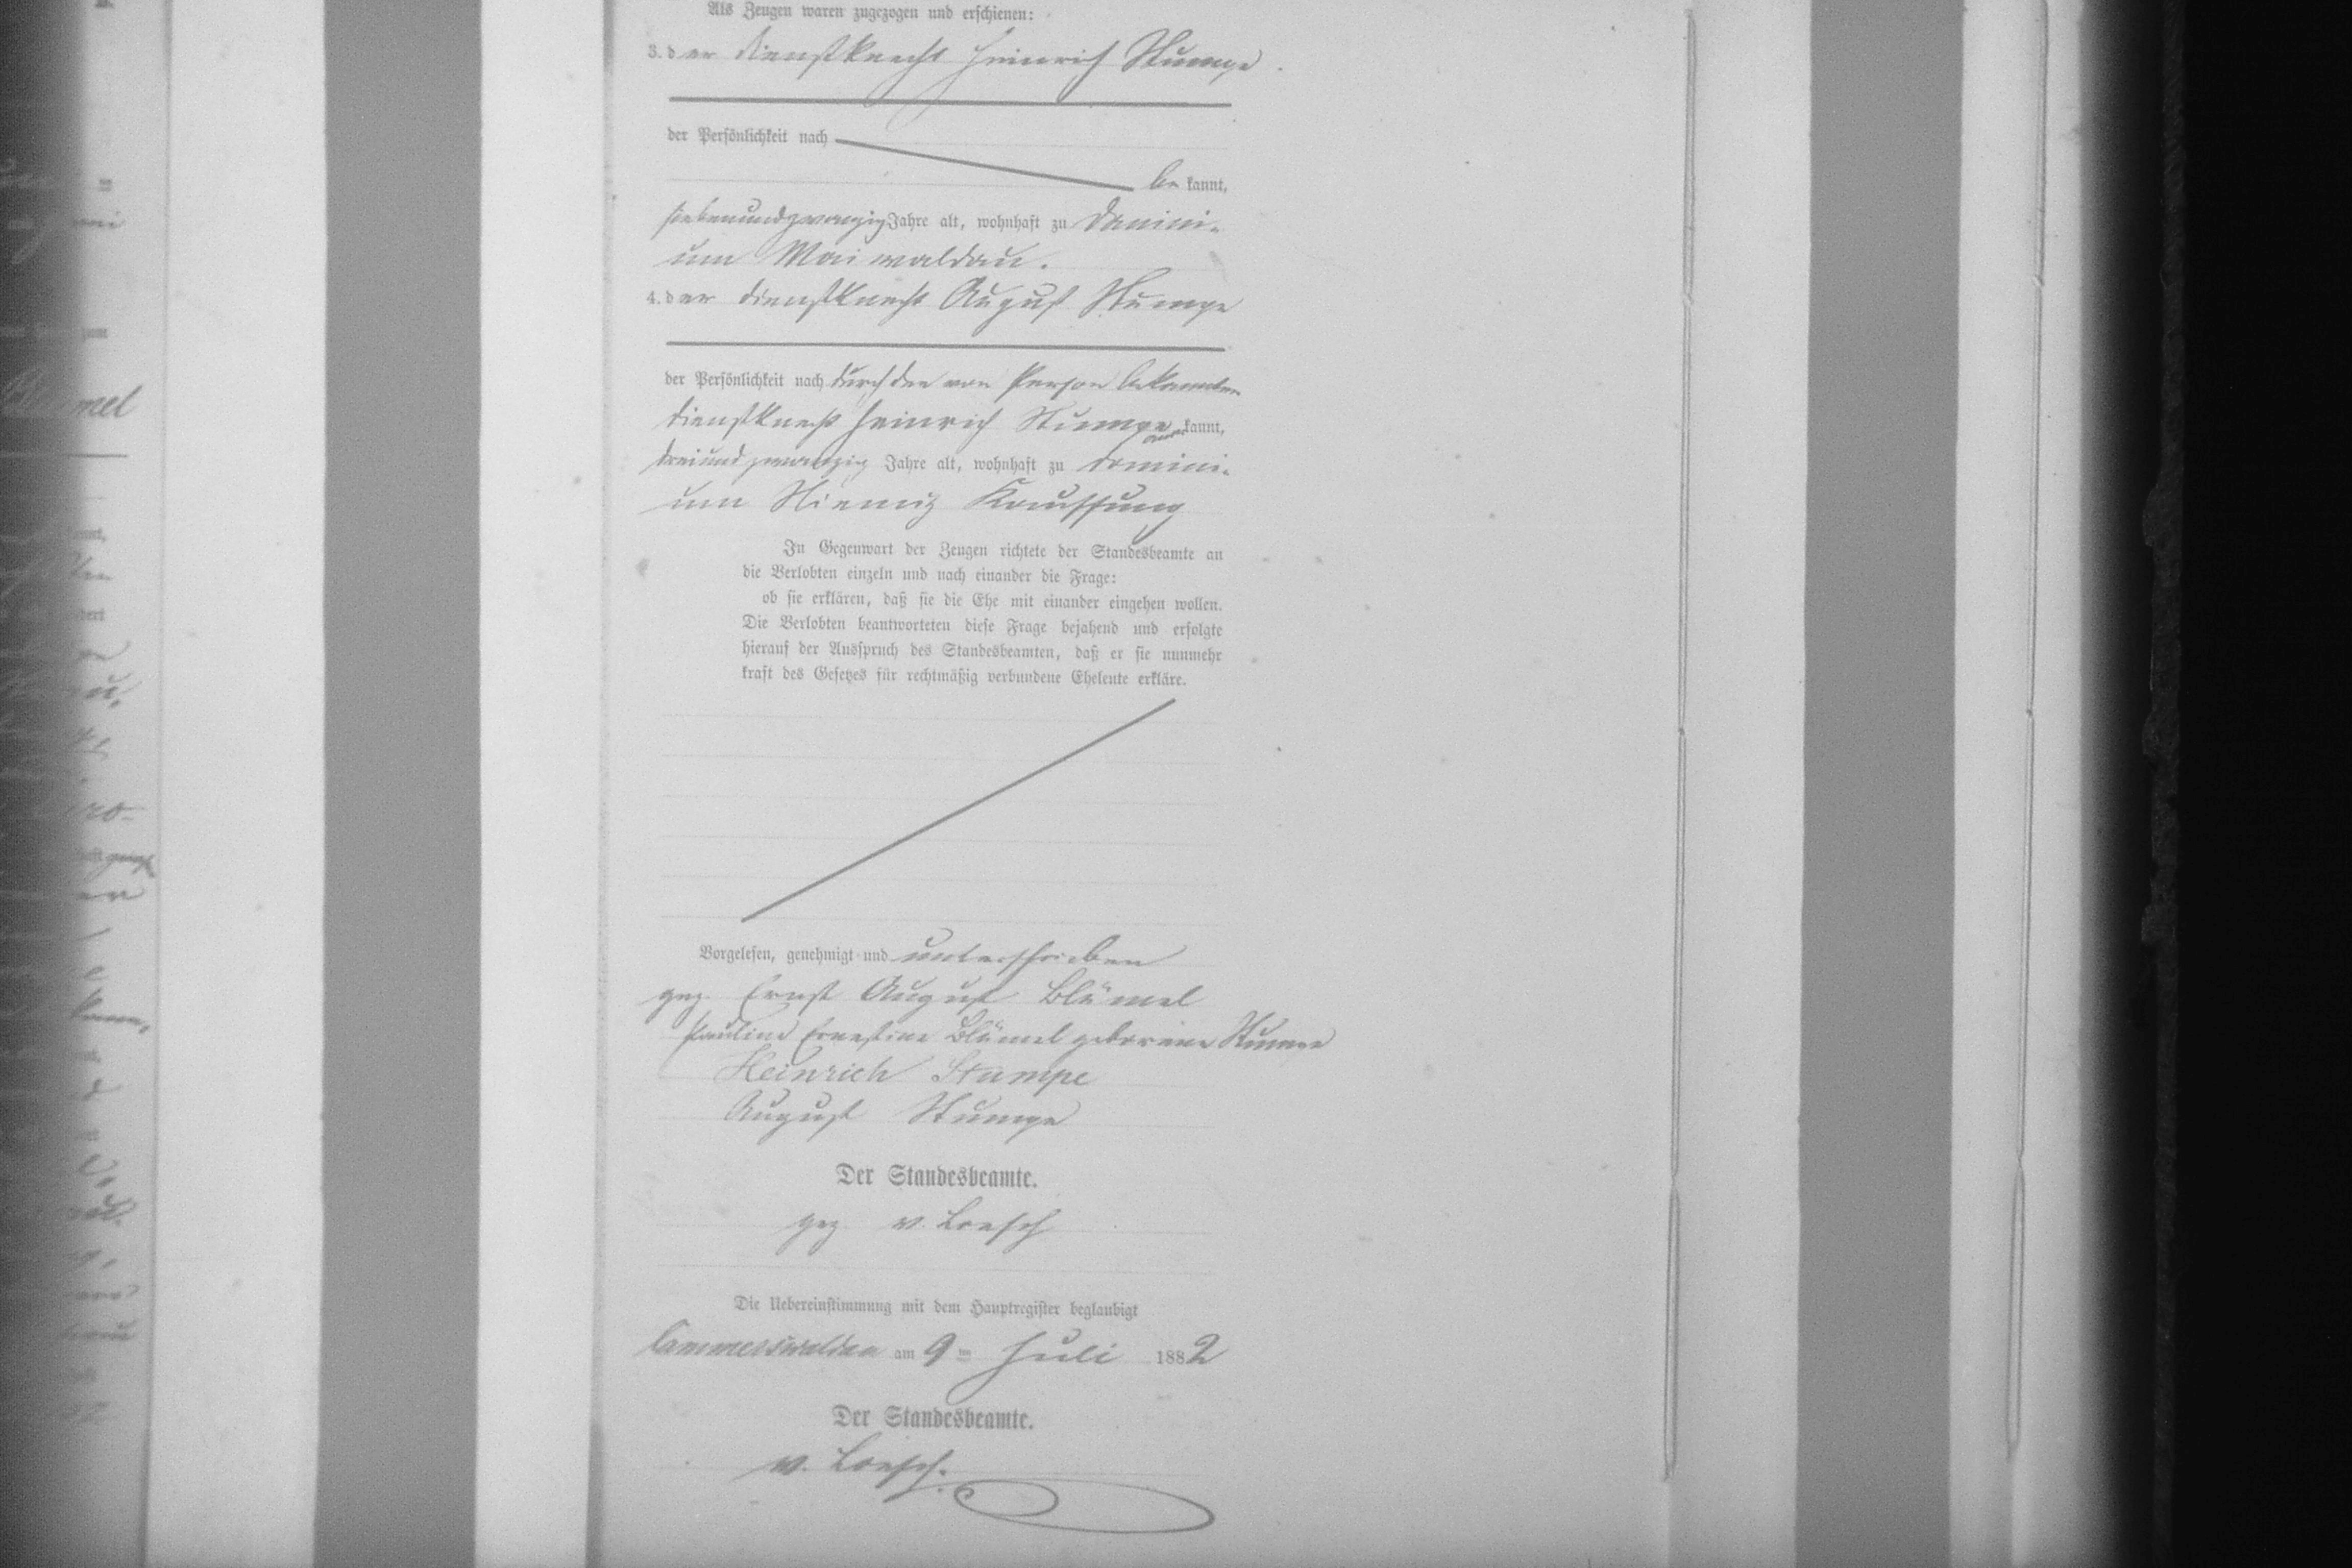 Als Zeugen waren zugezogen und erschienen:
3. der Dienstknecht Heinrich Stumpe
der Persönlichkeit nach
be kannt,
siebenundzwanzig Jahre alt, wohnhaft zu Domini-
um Maiwaldau.
4. der Dienstknecht August Stumpe
der Persönlichkeit nach durch den von Person bekannten
Dienstknecht Heinrich Stumpe kannt,
dreiundzwanzig Jahre alt, wohnhaft zu Domini-
um Kauffung
In Gegenwart der Zeugen richtete der Standesbeamte an
die Verlobten einzeln und nach einander die Frage:
ob sie erklären, daß sie die Ehe mit einander eingehen wollen.
Die Verlobten beantworteten diese Frage bejahend und erfolgte
hierauf der Ausspruch des Standesbeamten, daß er sie nunmehr
kraft des Gesetzes für rechtmäßig verbundene Eheleute erkläre.
Vorgelesen, genehmigt und unterschrieben
gez. Ernst August Blümel
Pauline Ernestine Blümel geborene Stumpe
Heinrich Stumpe
August Stumpe
Der Standesbeamte.
gez v. Loesch
Die Uebereinstimmung mit dem Hauptregister beglaubigt
Cammerswaldau am 9= Juli 1882
Der Standesbeamte.
v. Loesch.